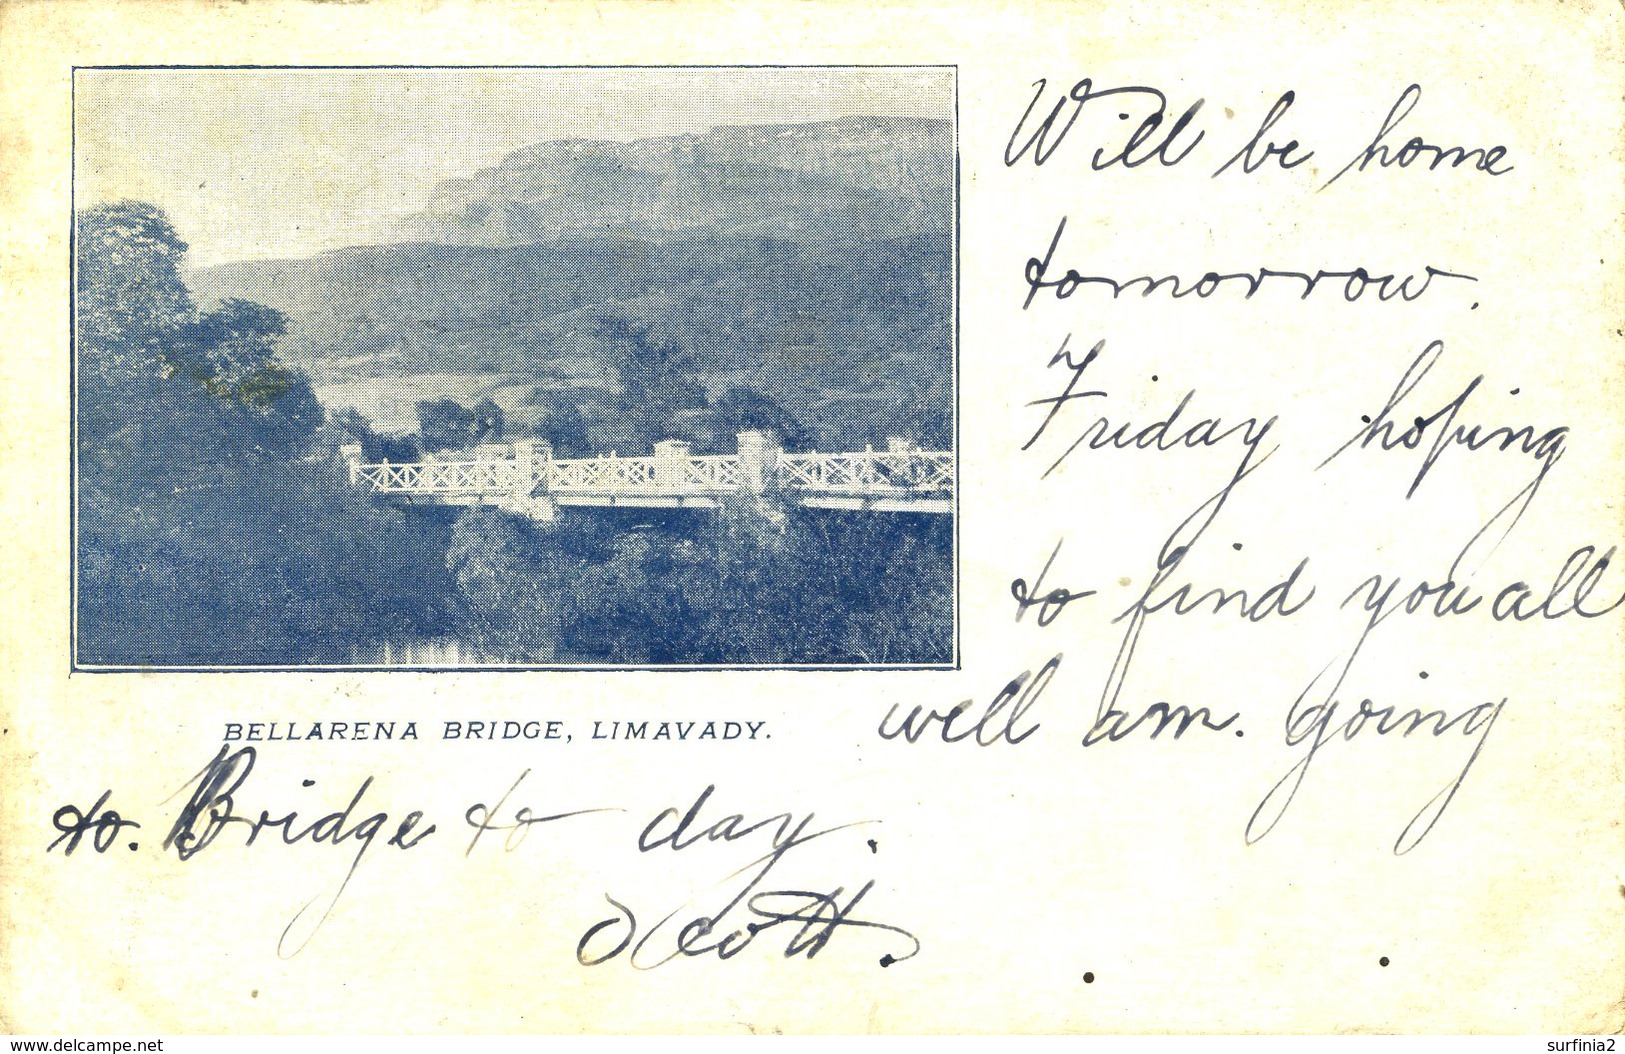 Will be home
tomorrow.
Friday hoping
to find you all
well am. going
to. Bridge to day.
Scott.
BELLARENA BRIDGE, LIMAVADY.
www.delcampe.net
surfinia2